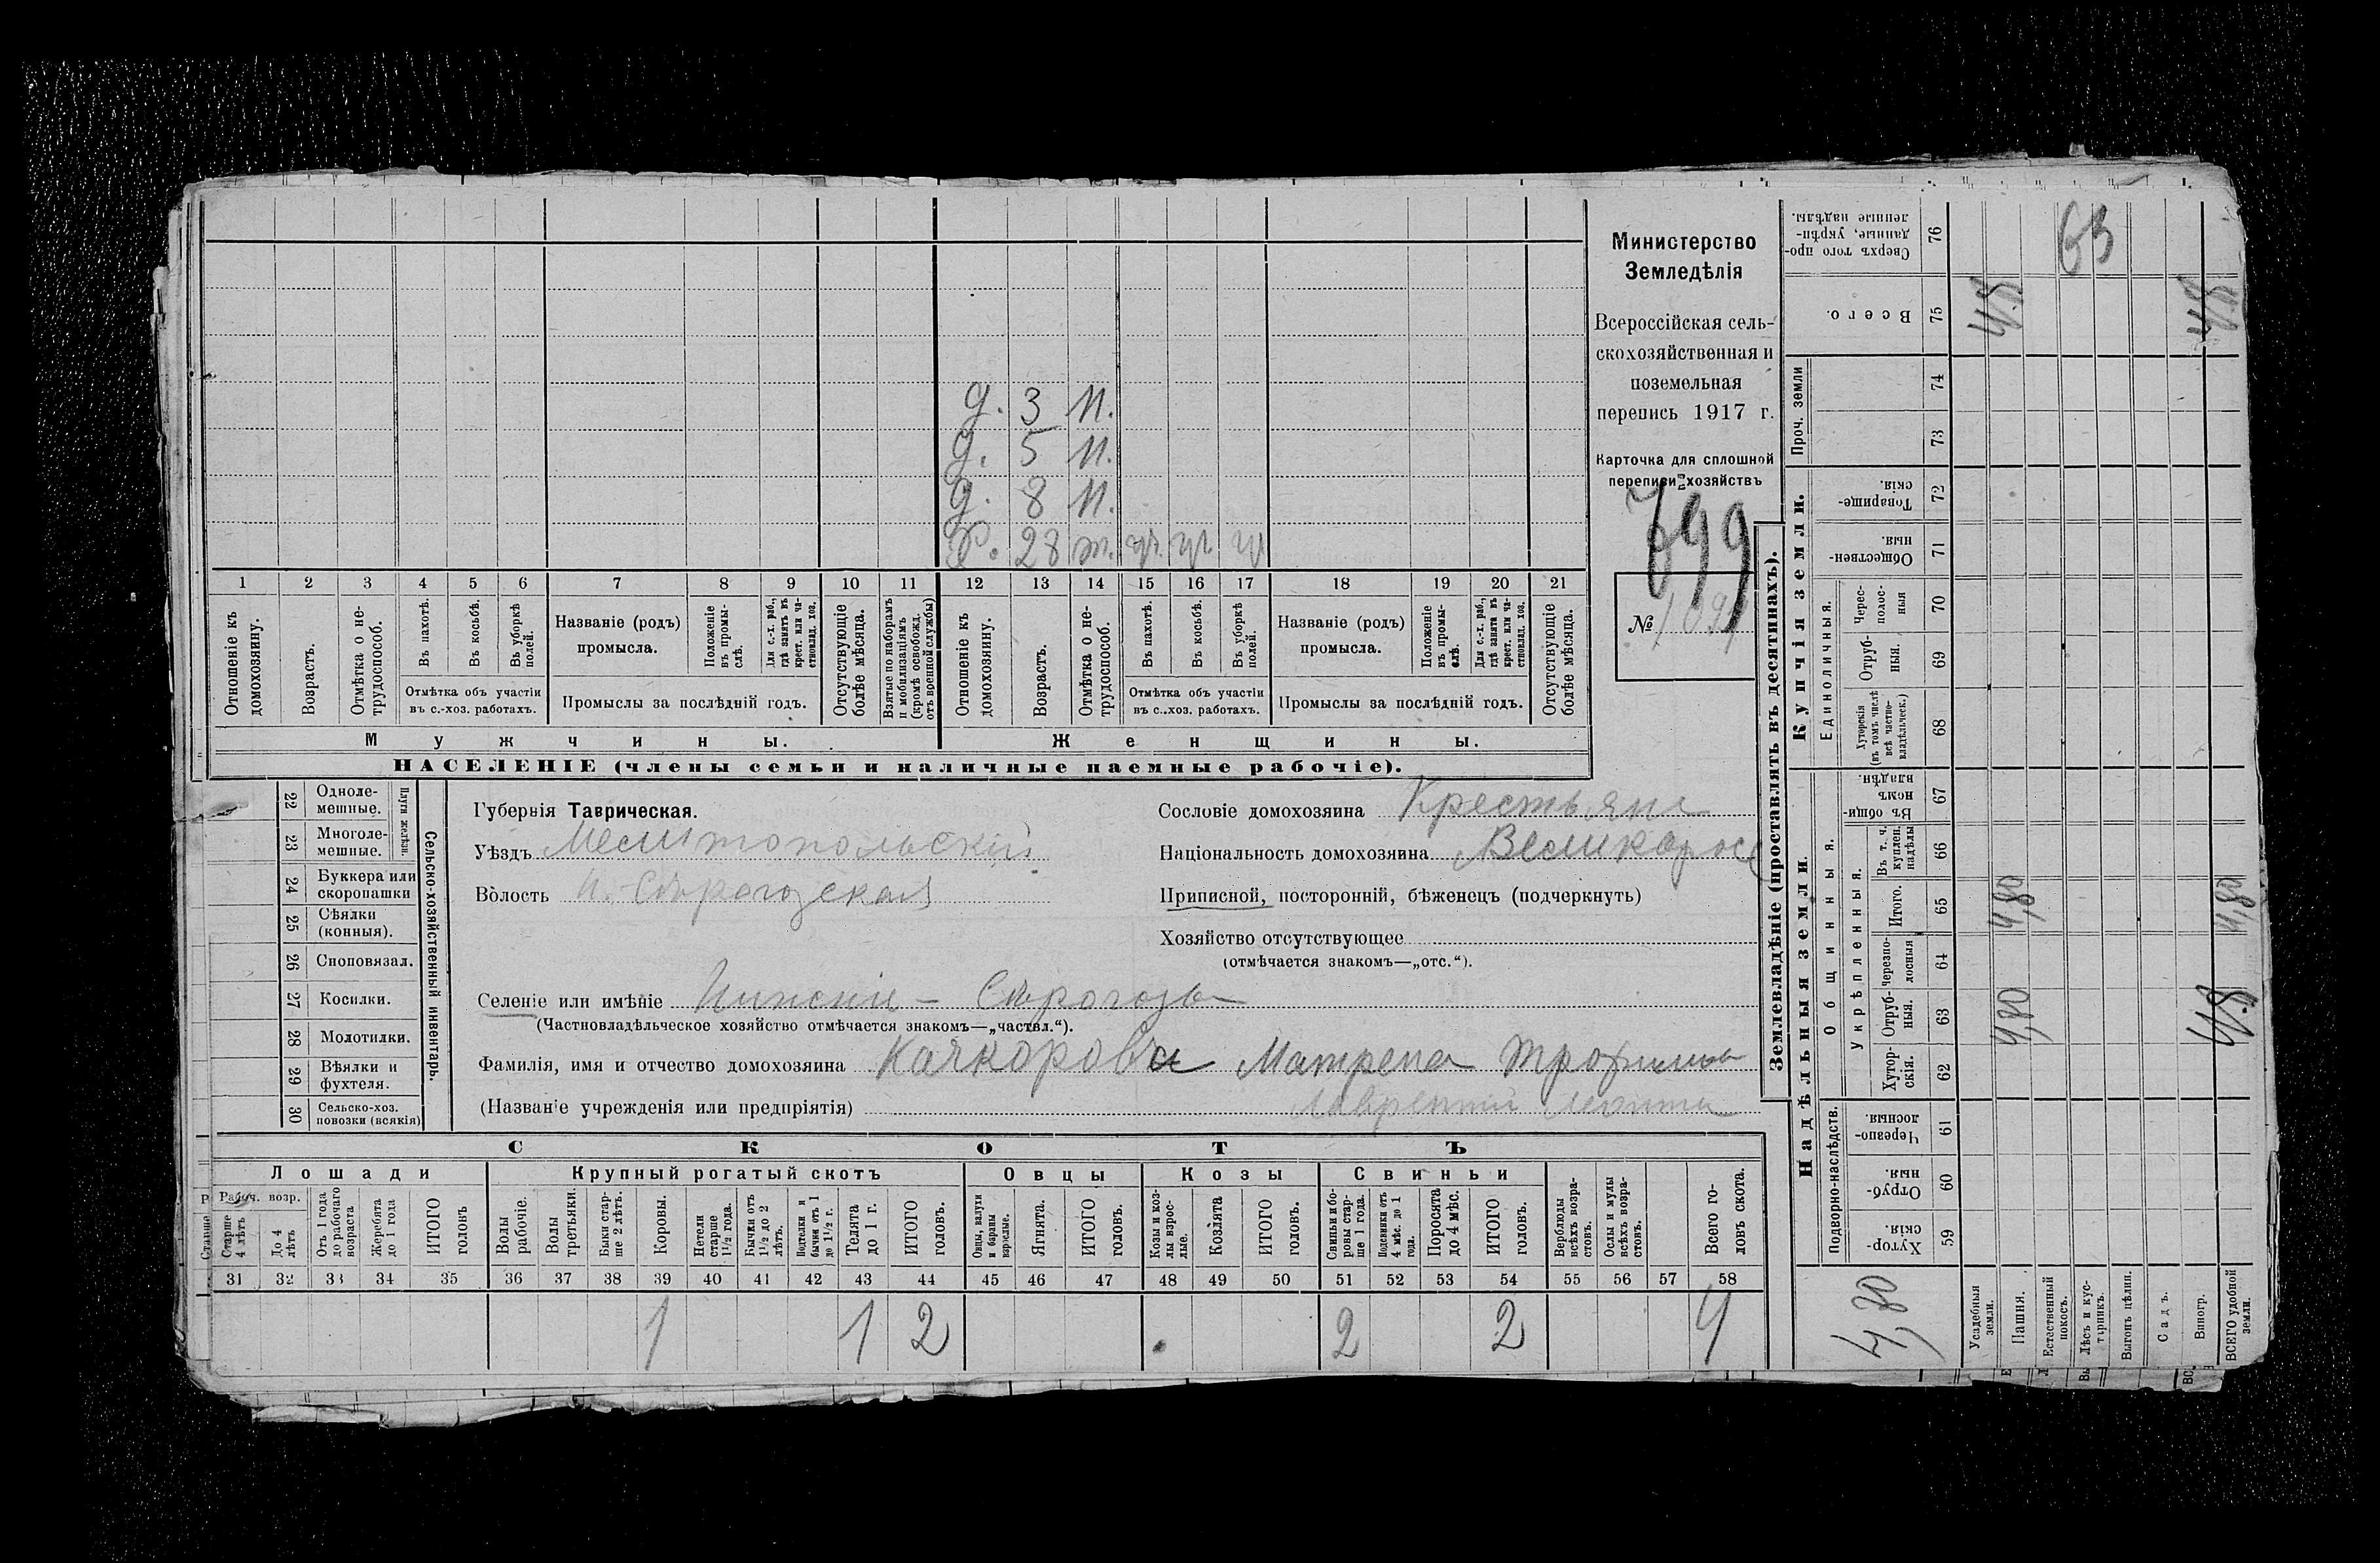 Министерство
Земледѣлія
Всероссійская сель-
скохозяйственная и
поземельная
перепись 1917 г.
Карточка для сплошной
переписи хозяйствъ
799
№ 109
д. 3 н.
д. 5 н.
д. 8 н.
Х. 28 т. ч. ч. ч.
1 2 3 4 5 6 7 8 9 10 11 12 13 14 15 16 17 18 19 20 21
Отношеніе къ домохозяину.
Возрастъ.
Отмѣтка о не-трудоспособ.
Въ пахотѣ.
Въ косьбѣ.
Въ уборкѣ полей.
Отмѣтка объ участіи въ с.-хоз. работахъ.
Названіе (родъ) промысла.
Положеніе въ промы-слѣ.
Для с.-х. раб., гдѣ занятъ въ крест. или ча-стновлад. хоз.
Промыслы за послѣдній годъ.
Отсутствующіе болѣе мѣсяца.
Взятые по наборамъ и мобилизаціямъ (кромѣ освобожд. отъ военной службы)
Отношеніе къ домохозяину.
Возрастъ.
Отмѣтка о не-трудоспособ.
Въ пахотѣ.
Въ косьбѣ.
Въ уборкѣ полей.
Отмѣтка объ участіи въ с.-хоз. работахъ.
Названіе (родъ) промысла.
Положеніе въ промы-слѣ.
Для с.-х. раб., гдѣ занята въ крест. или ча-стновлад. хоз.
Промыслы за послѣдній годъ.
Отсутствующіе болѣе мѣсяца.
Мужчины. Женщины.
НАСЕЛЕНІЕ (члены семьи и наличные наемные рабочіе).
22 Одноле-мешные.
23 Многоле-мешные.
Плуги желѣзн.
24 Буккера или скоропашки
25 Сѣялки (конныя).
26 Сноповязал.
27 Косилки.
28 Молотилки.
29 Вѣялки и фухтеля.
30 Сельско-хоз. повозки (всякія)
Сельско-хозяйственный инвентарь.
Губернія Таврическая.
Уѣздъ Мелитопольскій
Волость Н. Сѣрогозская
Селеніе или имѣніе Нижніе - Сѣрогозы
(Частновладѣльческое хозяйство отмѣчается знакомъ—„частвл.“).
Фамилія, имя и отчество домохозяина Качкорова Матрена Трофимов
(Названіе учрежденія или предпріятія) Лаврентій Леонти
Сословіе домохозяина Крестьяне
Національность домохозяина Великорос
Приписной, посторонній, бѣженецъ (подчеркнуть)
Хозяйство отсутствующее
(отмѣчается знакомъ—„отс.“).
СКОТЪ
Лошади Крупный рогатый скотъ Овцы Козы Свиньи
Рабоч. возр.
Старше 4 лѣтъ
До 4 лѣтъ
Отъ 1 года до рабочаго возраста
Жеребята до 1 года
ИТОГО головъ
Волы рабочіе.
Волы третьяки.
Быки стар-ше 2 лѣтъ.
Коровы.
Нетели старше 1½ года.
Бычки отъ 1½ до 2 лѣтъ.
Подтелки и бычки отъ 1 до 1½ г.
Телята до 1 г.
ИТОГО головъ.
Овцы, валухи и бараны взрослые.
Ягнята.
ИТОГО головъ.
Козы и коз-лы взрос-лые.
Козлята
ИТОГО головъ.
Свиньи и бо-ровы стар-ше 1 года.
Подсвинки отъ 4 мѣс. до 1 года.
Поросята до 4 мѣс.
ИТОГО головъ.
Верблюды всѣхъ возра-стовъ.
Ослы и мулы всѣхъ возра-стовъ.
Всего го-ловъ скота.
31 32 33 34 35 36 37 38 39 40 41 42 43 44 45 46 47 48 49 50 51 52 53 54 55 56 57 58
1 1 2 2 2 4
Землевладѣніе (проставлять въ десятинахъ).
Надѣльныя земли. Купчія земли.
Проч. земли
Подворно-наслѣдств.
Общинныя.
Укрѣпленныя.
Единоличныя.
Хутор-скія. 59
Отруб-ныя. 60
Черезпо-лосныя 61
Хутор-скія. 62
Отруб-ныя. 63
Черезпо-лосныя 64
Итого. 65
Въ т. ч. куплен. надѣлы 66
Въ общин-номъ владѣн. 67
Хуторскія (въ томъ числѣ всѣ частно-владѣльческ.) 68
Отруб-ныя. 69
Черес-полос-ныя 70
Обществен-ныя. 71
Товарище-скія. 72
73
74
Всего. 75
Сверхъ того про-данные, укрѣп-ленные надѣлы. 76
63
4,80
Усадебныя земли.
Пашня. 4,80 4,80 4,8
Естественный покосъ.
Лѣсъ и кус-тарникъ.
Выгонъ цѣлин.
Садъ.
Виногр.
ВСЕГО удобной земли. 4,8 4,80 4,8